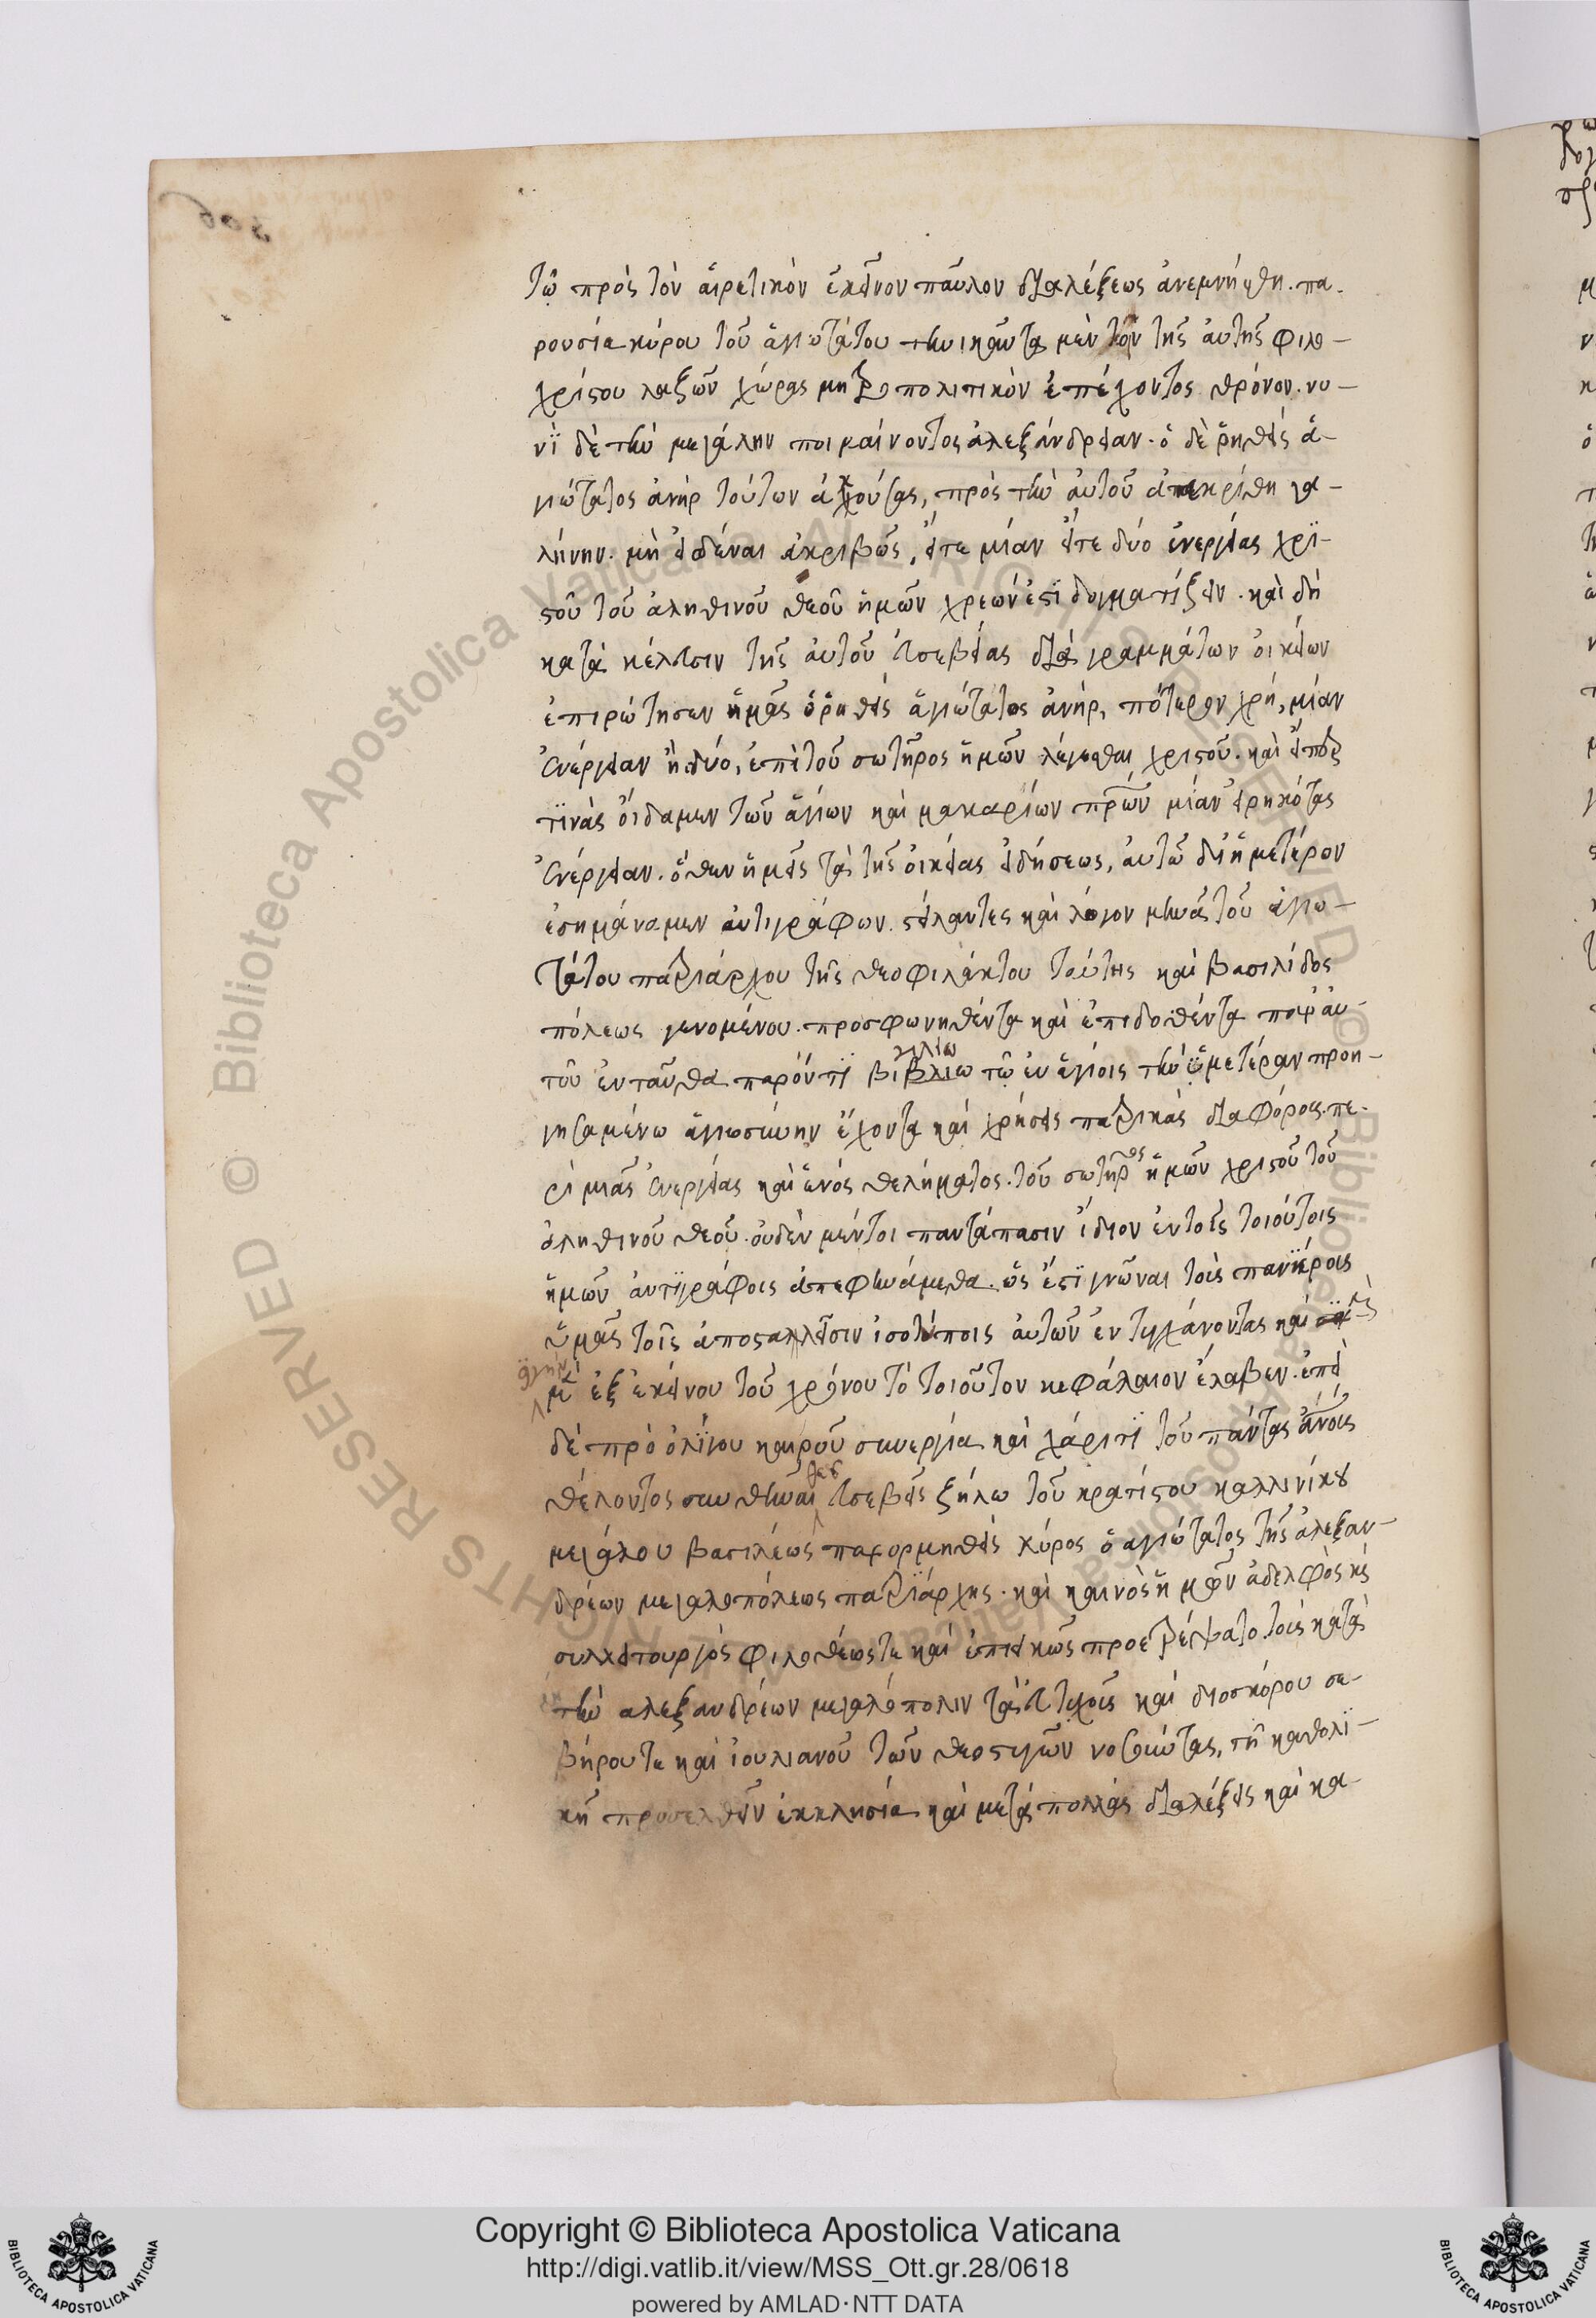 τῷ πρὸς τὸν αἱρετικὸν ἐκεῖνον παῦλον διαλέξεως ἀνεμνήσθη. πα-
ρουσία κύρου τοῦ ἁγιωτάτου τηνικαῦτα μὲν τὸν τῆς αὐτῆς φιλο-
χρίστου λαζῶν χώρας μητροπολιτικὸν ἐπέχοντος θρόνον. νυ-
νὶ δὲ τὴν μεγάλην ποιμαίνοντος ἀλεξάνδρειαν. ὁ δὲ ῥηθεὶς ἁ-
γιώτατος ἀνὴρ τούτων ἀκούσας, πρὸς τὴν αὐτοῦ ἀπεκρίθη γα-
λήνην. μὴ εἰδέναι ἀκριβῶς, εἴτε μίαν εἴτε δύο ἐνεργείας χρι-
στοῦ τοῦ ἀληθινοῦ θεοῦ ἡμῶν χρεών ἐστι δογματίζειν. καὶ δὴ
κατὰ κέλευσιν τῆς αὐτοῦ εὐσεβείας διὰ γραμμάτων οἰκείων
ἐπιρώτησεν ἡμᾶς ὁ ῥηθεὶς ἁγιώτατος ἀνήρ, πότερον χρή, μίαν
ἐνέργειαν ἢ δύο, ἐπὶ τοῦ σωτῆρος ἡμῶν λέγεσθαι χριστοῦ. καὶ εἴπερ
τινὰς οἴδαμεν τῶν ἁγίων καὶ μακαρίων πρῶν μίαν εἰρηκότας
ἐνέργειαν. ὅθεν ἡμεῖς τὰ τῆς οἰκείας εἰδήσεως, αὐτῷ δι' ἡμετέρον
ἐσημάναμεν ἀντιγράφων. στείλαντες καὶ λόγον μηνᾶ τοῦ ἁγιω-
τάτου πατριάρχου τῆς θεοφιλάκτου ταύτης καὶ βασιλίδος
πόλεως γενομένου. προσφωνηθέντα καὶ ἐπιδοθέντα παρ' αὐ-
γιλίω
τοῦ ἐνταῦθα παρόντι βιβλιω τῷ ἐν ἁγίοις τὴν ὑμετέραν προη-
γησαμένω ἁγιωσύνην ἔχοντα καὶ χρήσεις πατρικὰς διαφόρους πε-
ρὶ μιᾶς ἐνεργείας καὶ ἑνὸς θελήματος. τοῦ σωτῆρος ἡμῶν χριστοῦ τοῦ
ἀληθινοῦ θεοῦ. οὐδὲν μέντοι παντάπασιν ἴδιον ἐν τοῖς τοιούτοις
ἡμῶν ἀντιγράφοις ἀπεφηνάμεθα. ὡς ἔστι γνῶναι τοὺς πανιέρους
ὑμᾶς τοῖς ἀποσταλεῖσιν ἰσοτύποις αὐτῶν ἐντυγχάνοντας καὶ
μὲν ἐξ ἐκείνου τοῦ χρόνου τὸ τοιοῦτον κεφάλαιον ἔλαβεν. ἐπεὶ
δὲ πρὸ ὀλίγου καιροῦ συνεργία καὶ χάριτι τοῦ πάντας ἀνους
θέλοντος σωθῆναι θεοῦ εὐσεβεῖς ζήλω τοῦ κρατίστου καλλινίκου
μεγάλου βασιλέως παρορμηθεὶς κύρος ὁ ἁγιώτατος τῆς ἀλεξαν-
δρέων μεγαλοπόλεως πατριάρχης. καὶ καινὸς ἡμῶν ἀδελφὸς κὲ
συλλειτουργὸς φιλοθέως τε καὶ ἐπιεικῶς προετρέψατο τοὺς κατὰ
τὴν αλεξανδρέων μεγαλόπολιν τὰ εὐτυχοῦς καὶ διοσκόρου σε-
βήρου τε καὶ ἰουλιανοῦ τῶν θεοστυγῶν νοσοῦντας, τῇ καθολι-
κῇ προσελθεῖν ἐκκλησία καὶ μετὰ πολλὰς διαλέξεις καὶ κα-
Copyright © Biblioteca Apostolica Vaticana
http://digi.vatlib.it/view/MSS_Ott.gr.28/0618
powered by AMLAD·NTT DATA